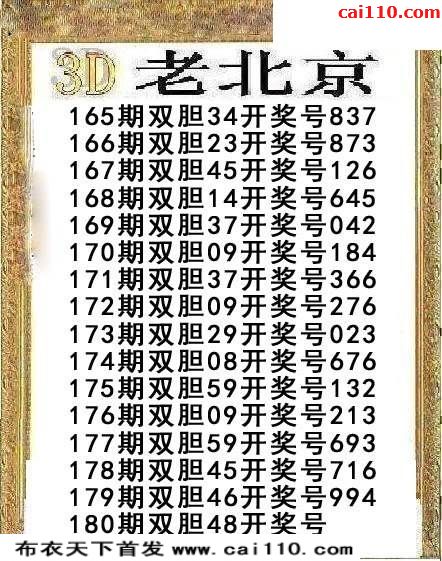 cai110.com
3D 老北京
165期双胆34开奖号837
166期双胆23开奖号873
167期双胆45开奖号126
168期双胆14开奖号645
169期双胆37开奖号042
170期双胆09开奖号184
171期双胆37开奖号366
172期双胆09开奖号276
173期双胆29开奖号023
174期双胆08开奖号676
175期双胆59开奖号132
176期双胆09开奖号213
177期双胆59开奖号693
178期双胆45开奖号716
179期双胆46开奖号994
180期双胆48开奖号
布衣天下首发 www.cai110.com